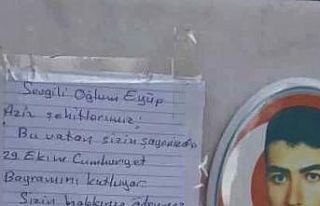 Sevgili Oğlum Eyüp
Aziz Şehitlerimiz;
Bu vatan sizin sayenizde
29 Ekim Cumhuriyet
Bayramını kutluyor
Sizin hakkınız